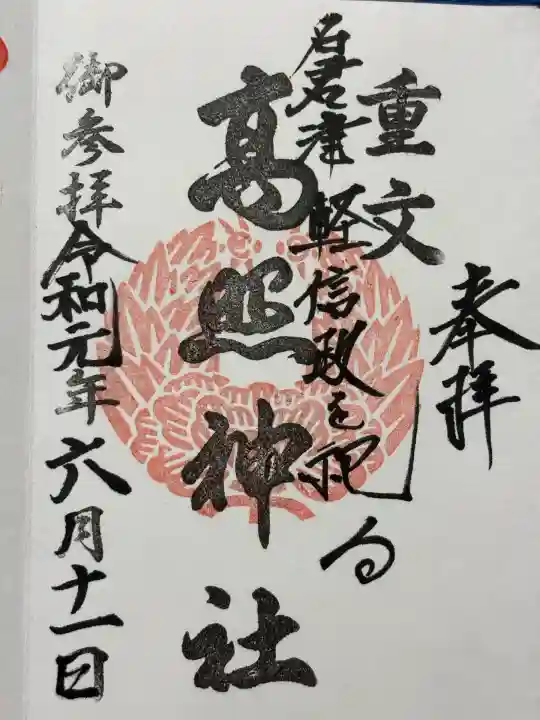 奉拝
重文
名君津軽信政を祀る
高照神社
御参拝令和元年六月十一日